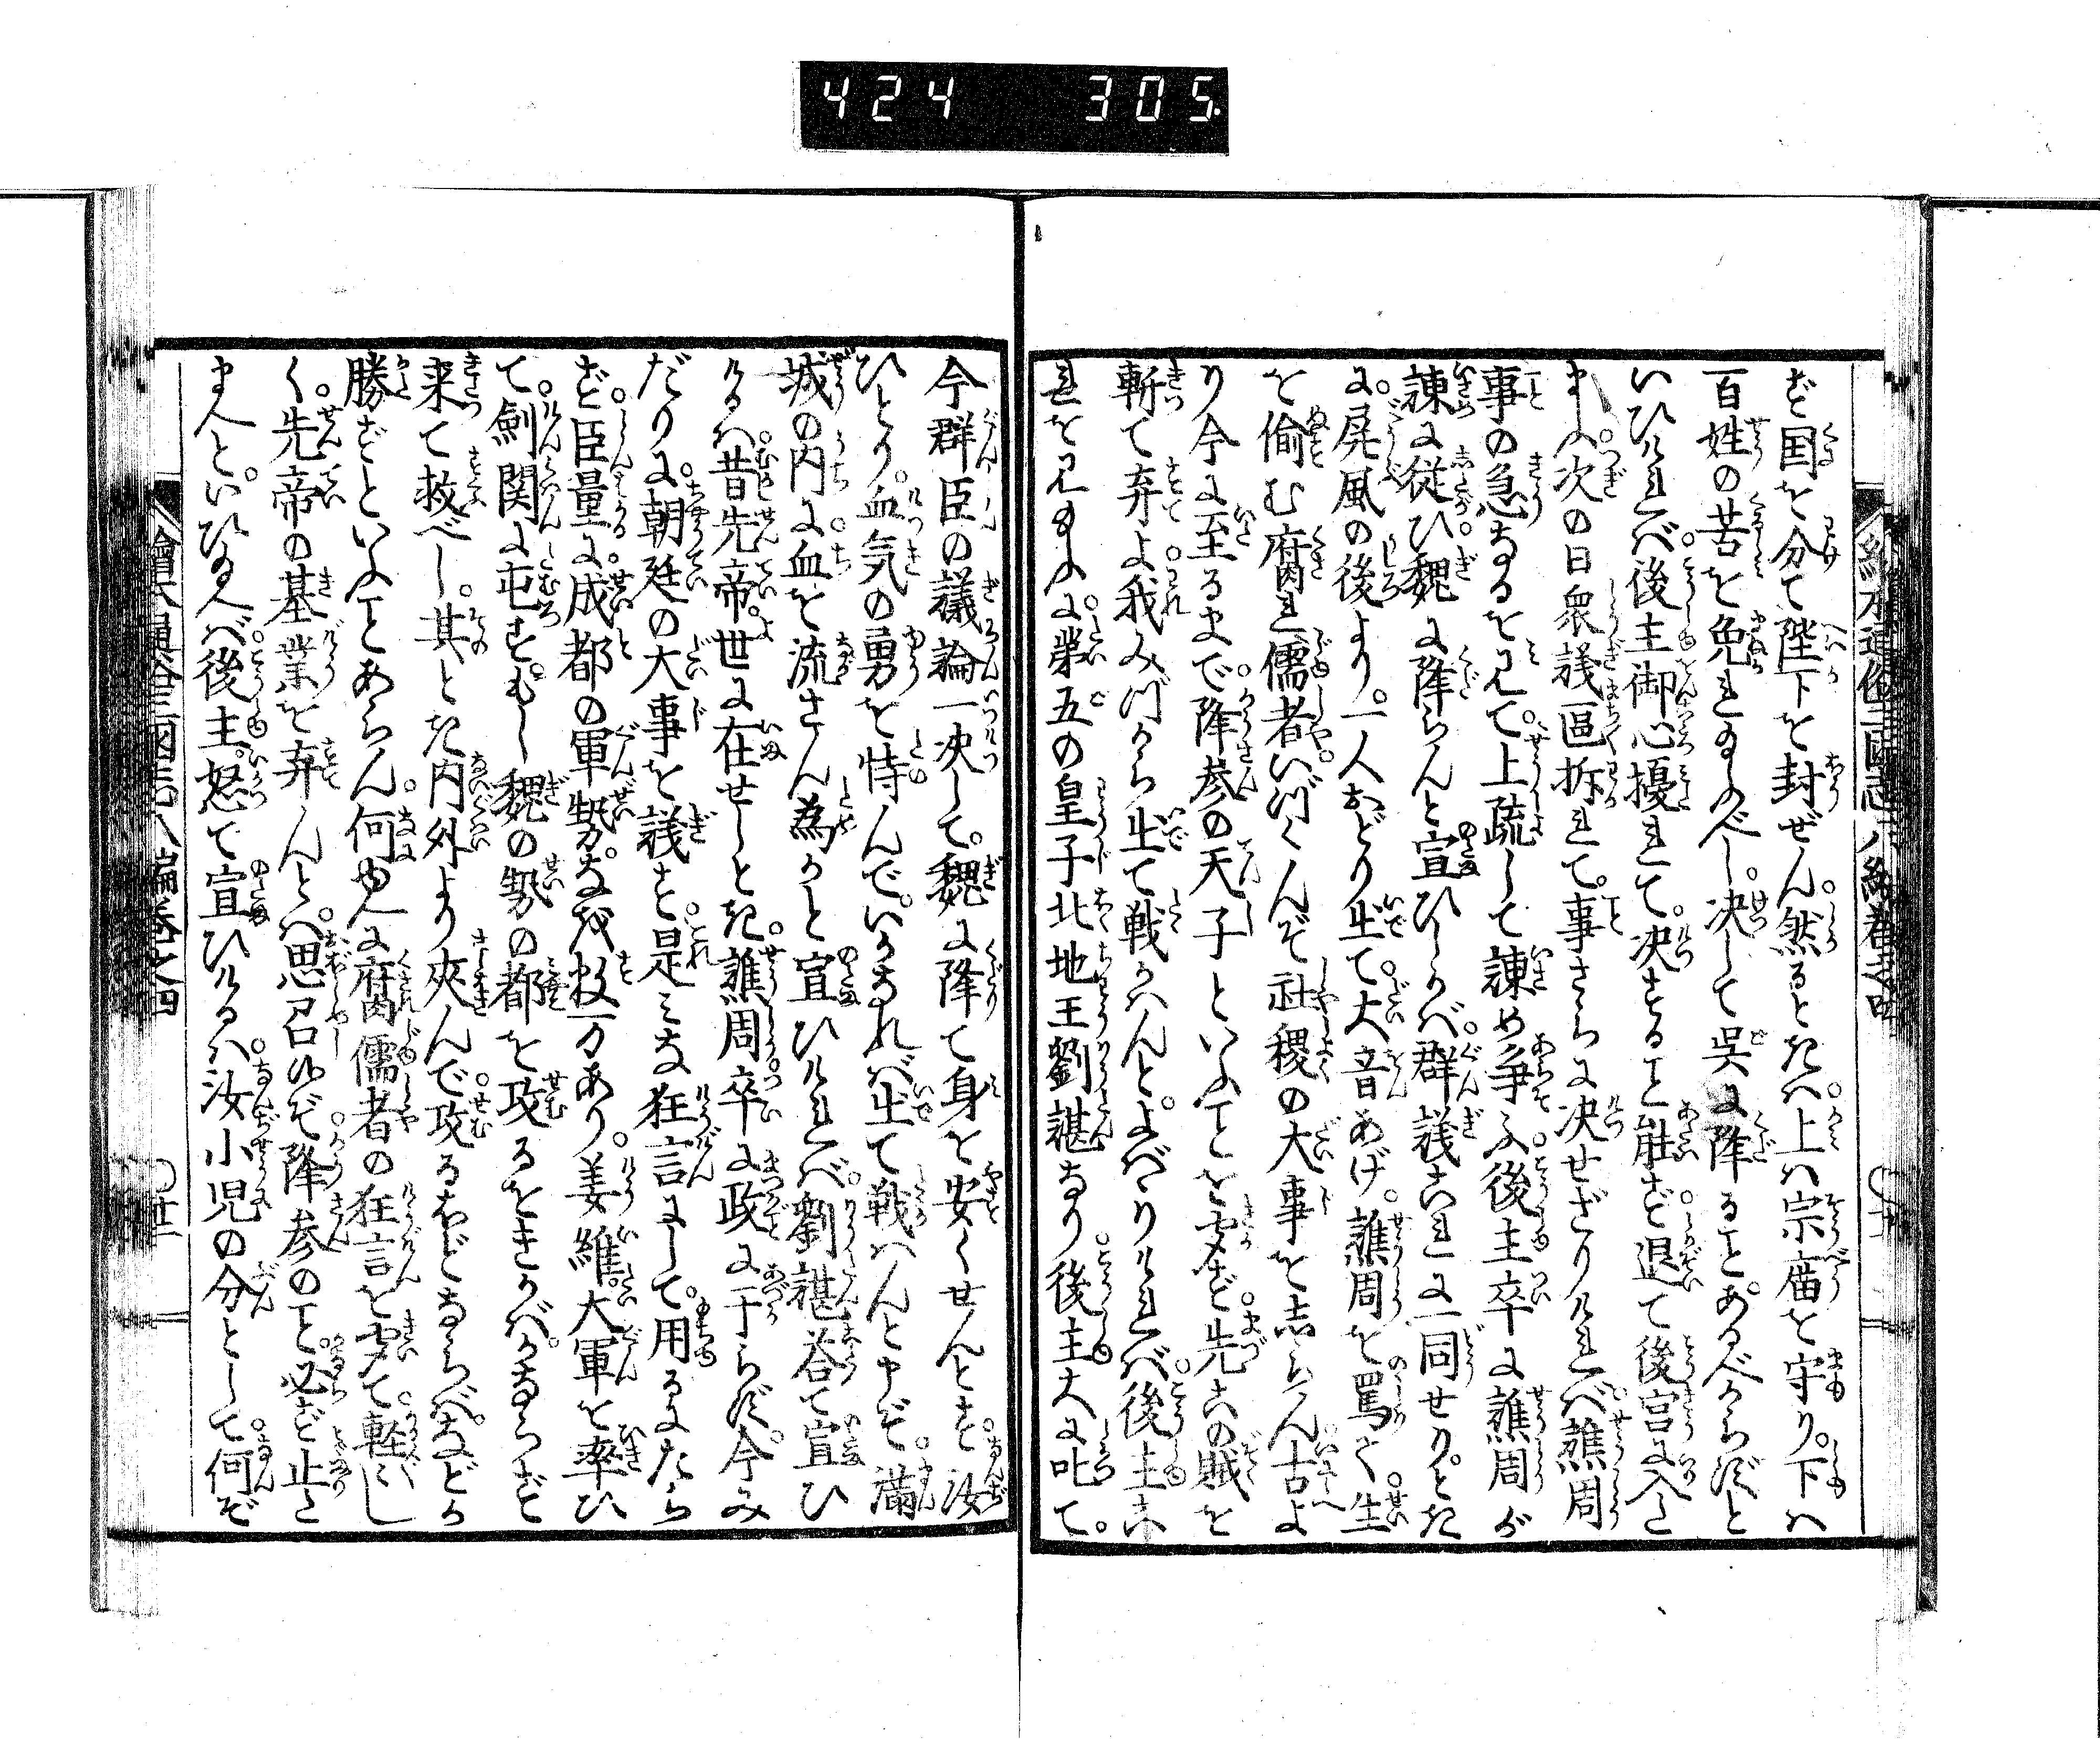 424 305
ず国を分て陛下を封ぜん。然るときハ。上ハ宗廟を守り。下ハ
百姓の苦を免れ玉ふべし。决して呉に降ること。あるべからずと
いひけれバ。後主御心擾れて。决すること能ず。退て後宮に入た
まふ。次の日衆議區拆れて。事さらに决せざりけれバ。譙周
事の急なるを見て。上疏して諫め争ふ。後主卒に譙周が
諫に従ひ。魏に降らんと宣ひしかバ。群議これに一同せり。とき
に。屏風の後より。一人おどり出て。大音あげ。譙周を罵く。生
を偷む腐れ儒者。いづくんぞ社稷の大事をしらん。古よ
り今に至るまで。降参の天子といふことを聞ず。先この賊を
斬て弃よ。我みづから出て戦かハんと。よバりけれバ。後主こ
れを見玉ふに。第五の皇子北地王劉諶なり。後主大に叱て。
今群臣の議論一决して。魏に降て身を安くせんとす。汝
ひとり。血気の勇を恃んで。いかなれバ出て戦ハんと申ぞ。満
城の内に。血を流さん為かと宣ひけれバ。劉諶荅て宣ひ
けるハ。昔先帝。世に在せしとき。譙周。卒に政に干らず。今み
だりに。朝廷の大事を議す。是みな狂言にして。用るにたら
ず。臣量るに。成都の軍勢。なを数万あり。姜維大軍を率ひ
て。剣関に屯す。もし魏の勢の都を攻るをきかバ。かならず
来て救べし。其とき内外より夾んで。攻るほどならバ。などか
勝ずといふことあらん。何ゆへに腐儒者の狂言を聞て。軽々し
く。先帝の基業を弃んとハ。思召ぬぞ。降参のこと。必ず止た
まへと。いひ給へバ。後主怒て宣ひけるハ。汝小児の分として。何ぞ